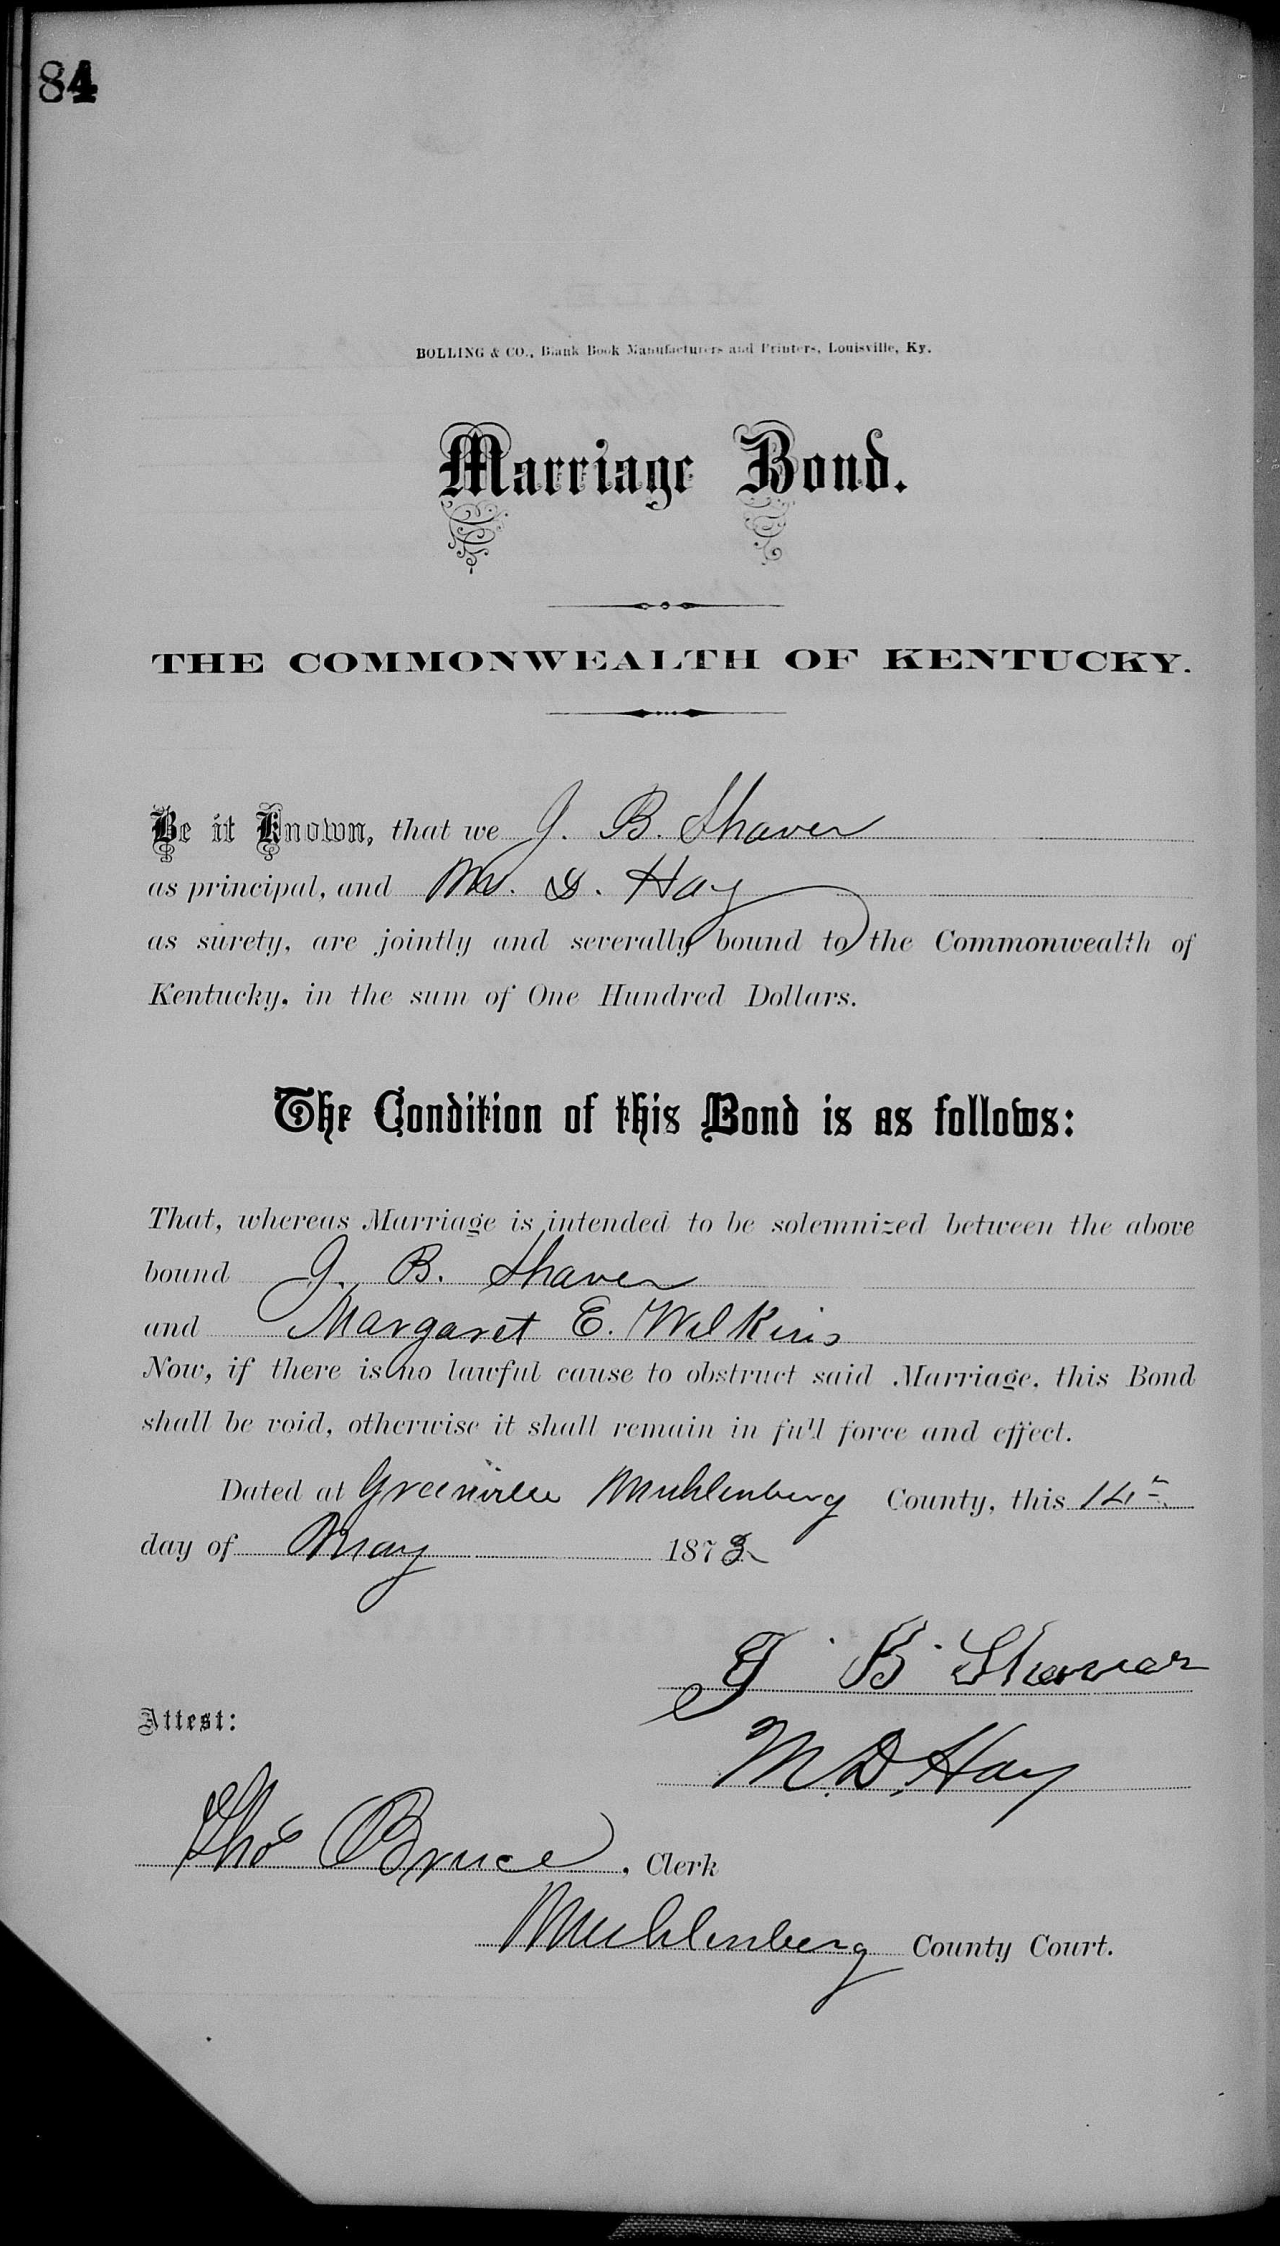 84
BOLLING & CO., Blank Book Manufacturers and Printers, Louisville, Ky.
Marriage Bond.
THE COMMONWEALTH OF KENTUCKY.
Be it Known, that we J. B. Shaver
as principal, and M. D. Hay
as surety, are jointly and severally bound to the Commonwealth of
Kentucky, in the sum of One Hundred Dollars.
The Condition of this Bond is as follows:
That, whereas Marriage is intended to be solemnized between the above
bound J. B. Shaver
and Margaret E. Wilkins
Now, if there is no lawful cause to obstruct said Marriage, this Bond
shall be void, otherwise it shall remain in full force and effect.
Dated at Greenville Muhlenberg County, this 14th
day of May 187
J B Shaver
M. D. Hay
Attest:
Thos Bruce, Clerk
Muhlenberg County Court.